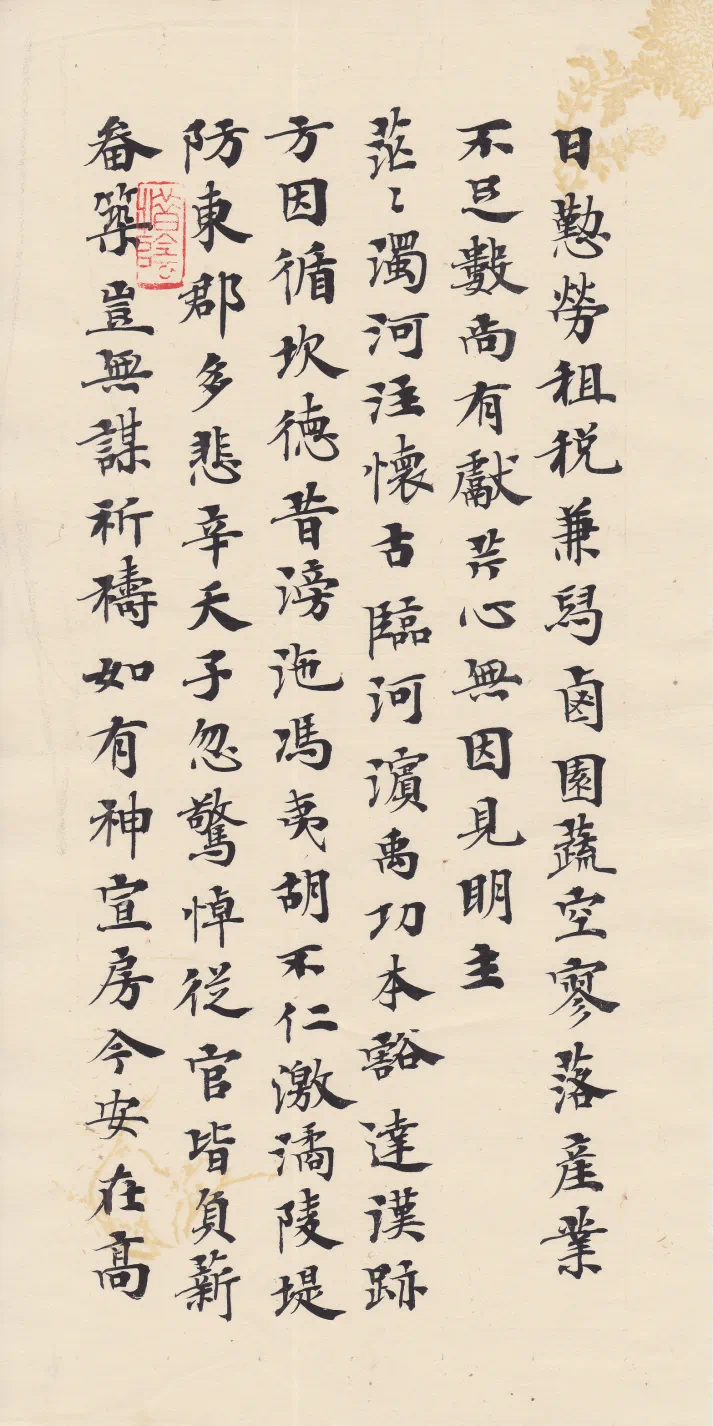 日懃勞租税兼舄鹵園蔬空寥落産業
不足數尚有獻芹心無因見明主
茫〻濁河注懷古臨河濱禹功本豁達漢跡
方因循坎德昔滂沲馮夷胡不仁激潏陵堤
防東郡多悲辛天子忽驚悼從官皆負薪
畚築豈無謀祈禱如有神宣房今安在高
惜陰